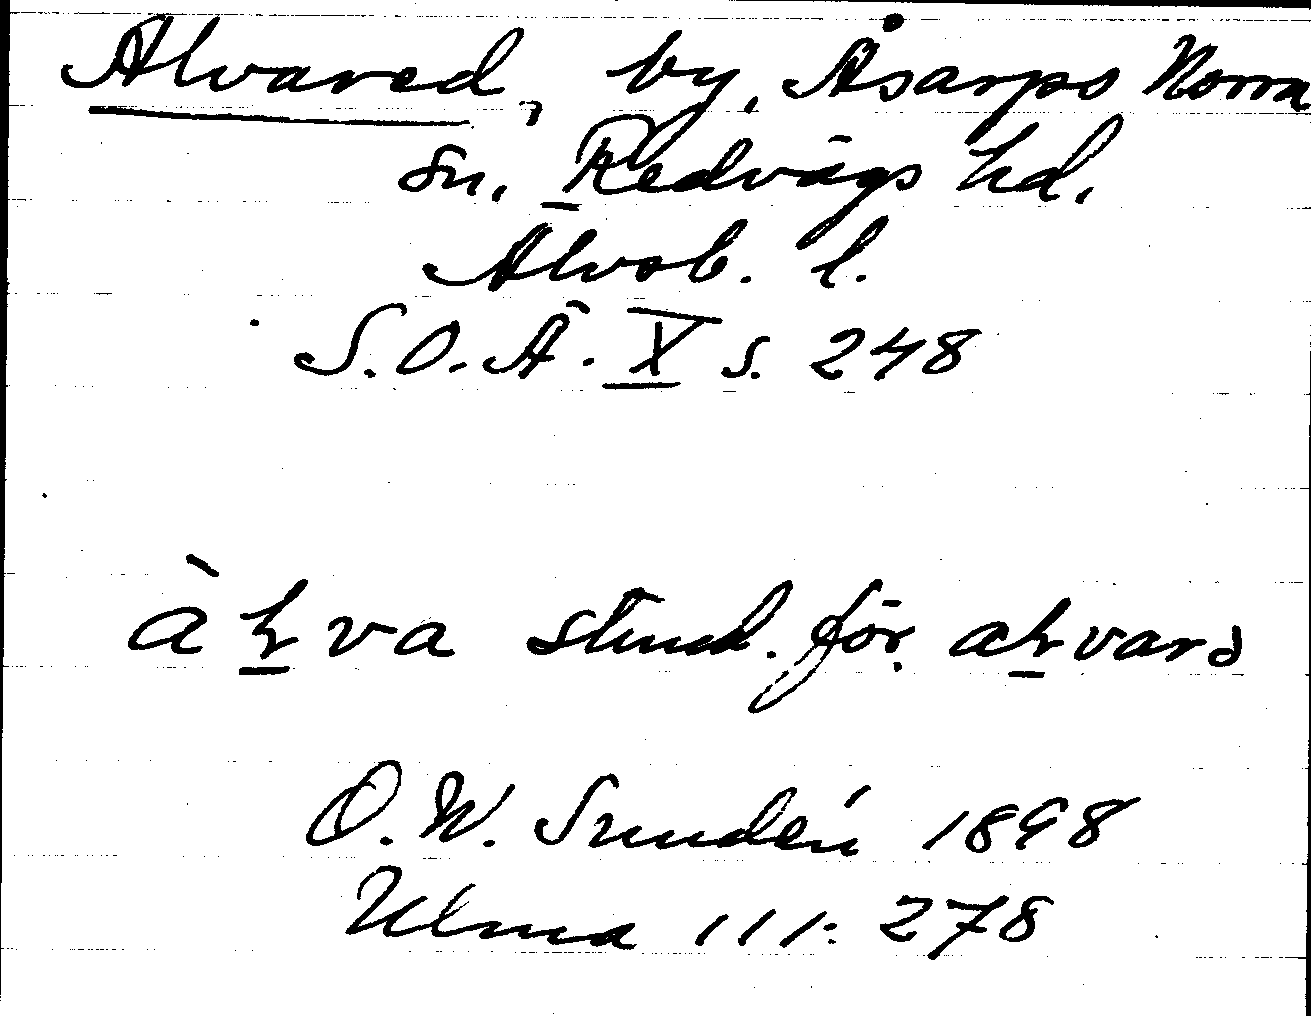 Alvared, by, Åsarps Norra
sn. Redvägs hd.
Älvsb. l.
S.O.Ä. X s. 248
àꜧva stund. för aꜧvarə
O. W. Sundén 1898
Ulma 111: 278